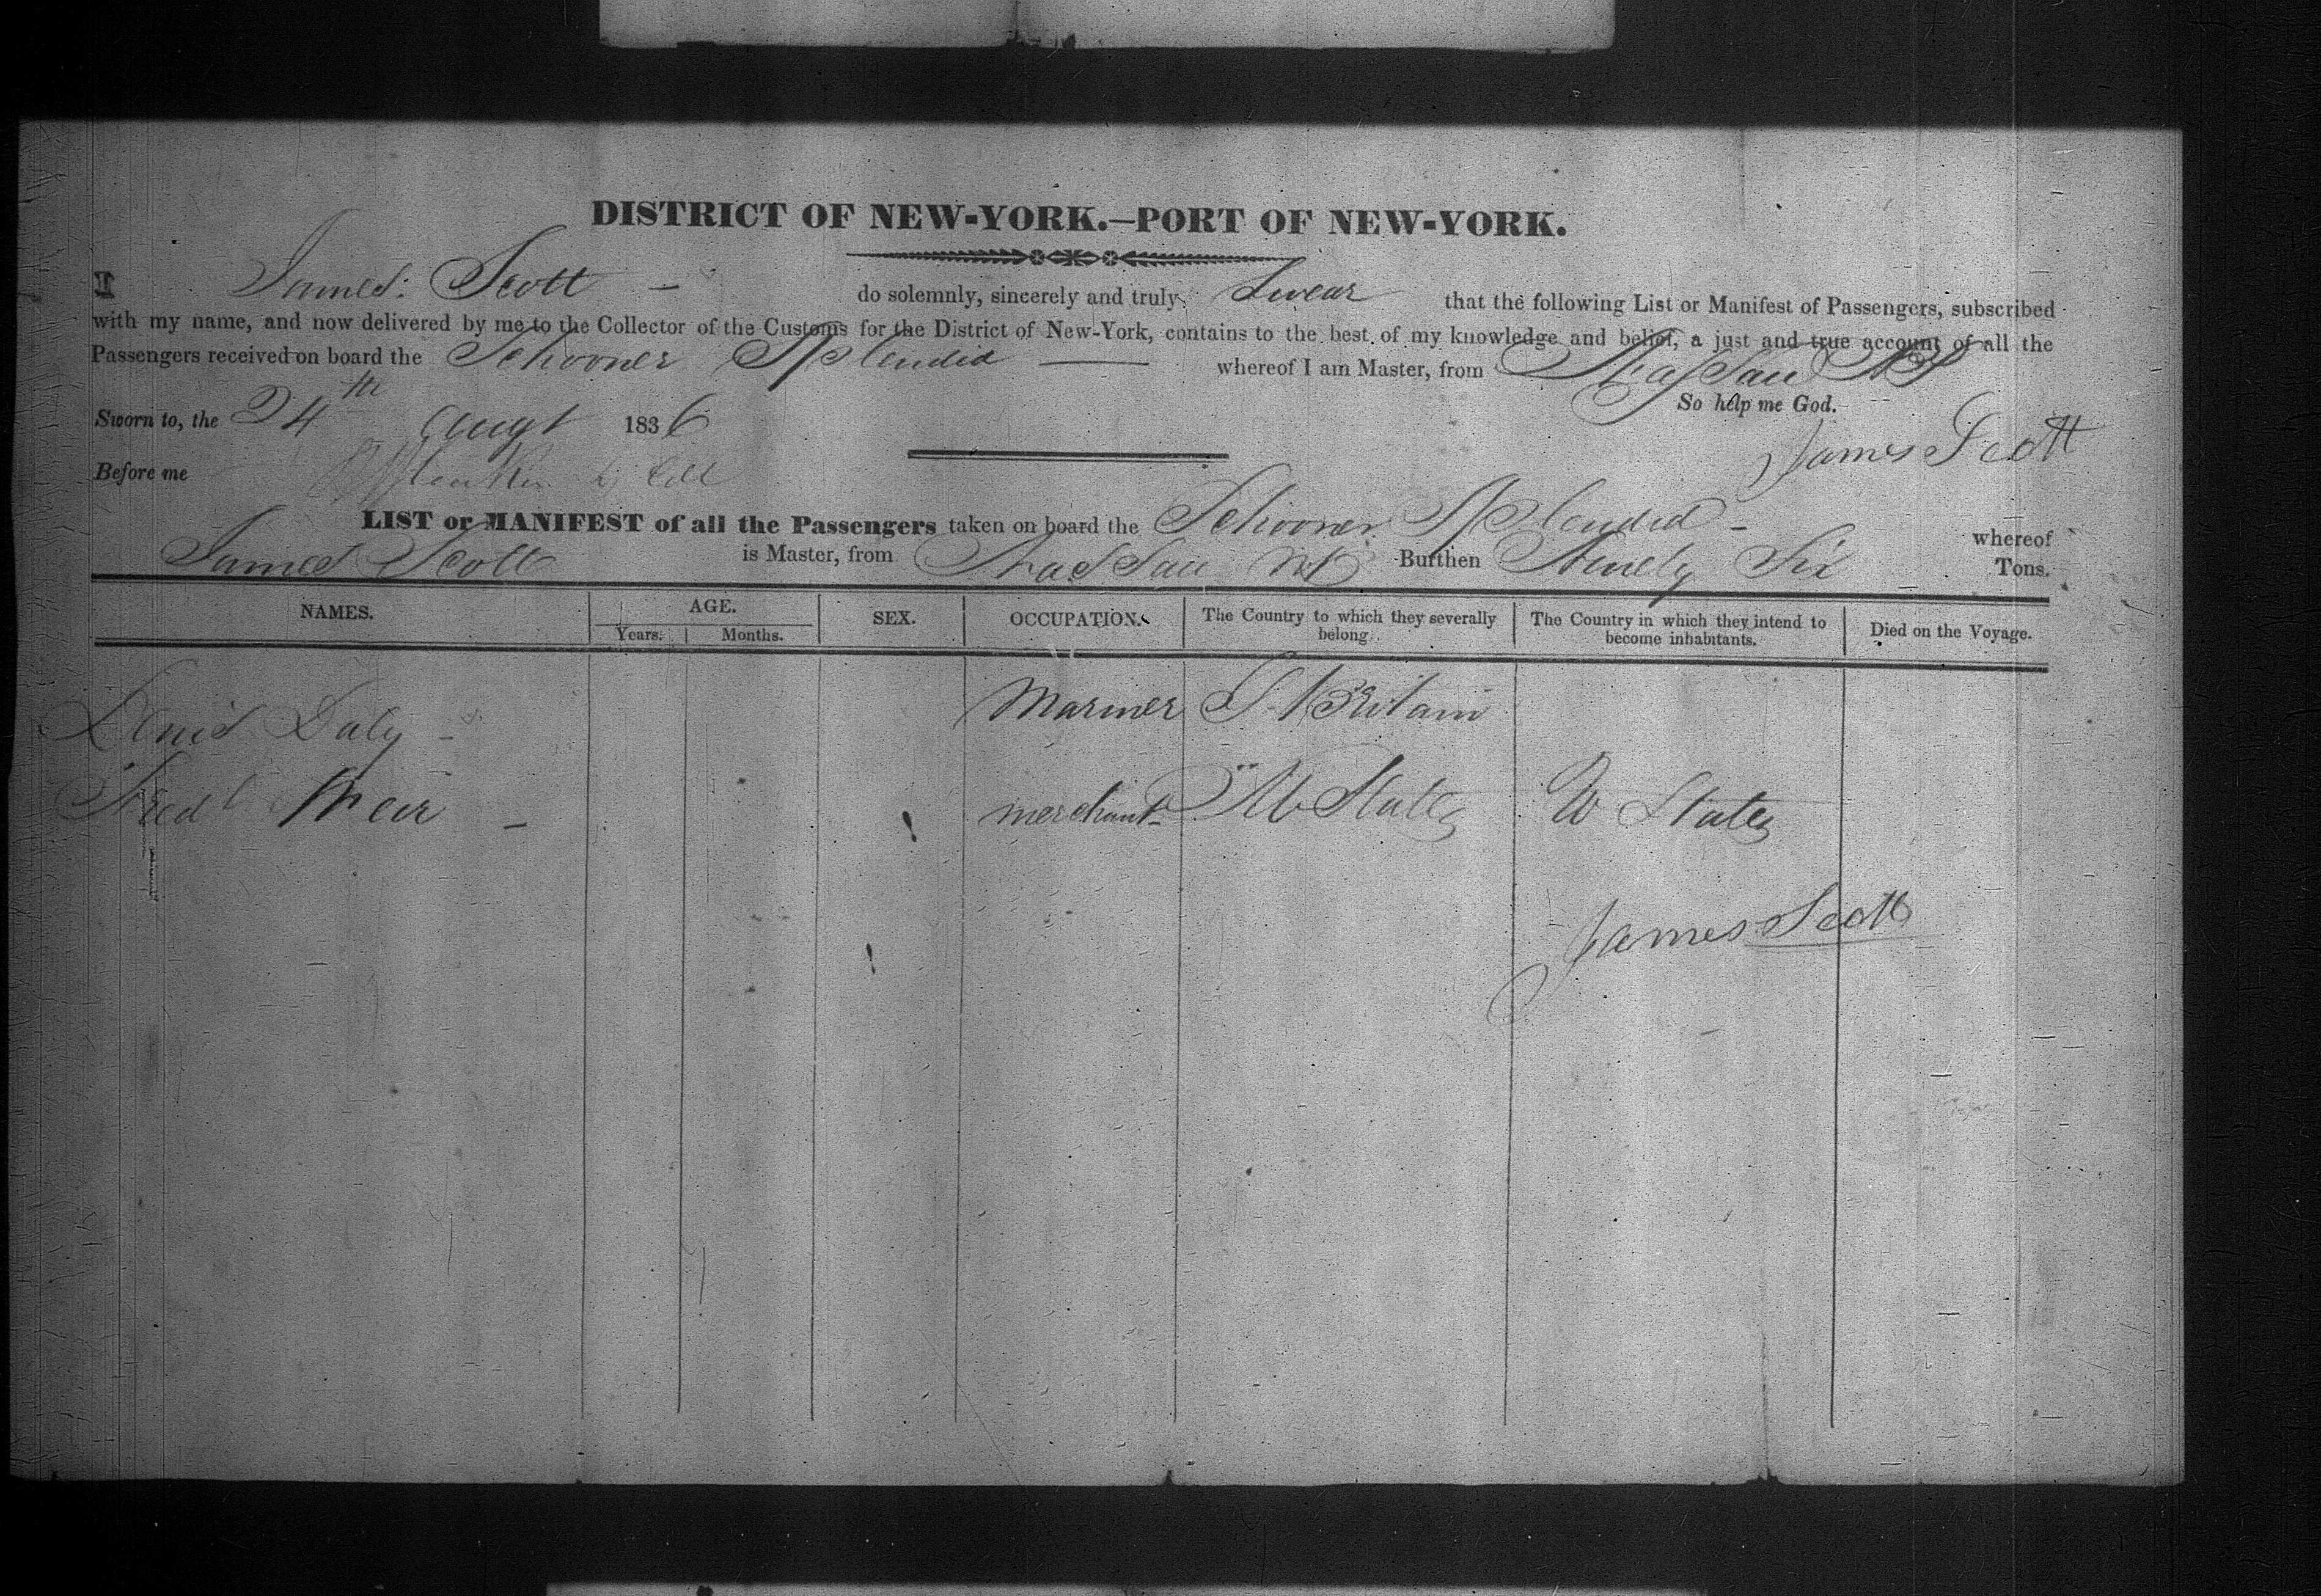 DISTRICT OF NEW-YORK.—PORT OF NEW-YORK.
I James Scott — do solemnly, sincerely and truly Swear that the following List or Manifest of Passengers, subscribed
with my name, and now delivered by me to the Collector of the Customs for the District of New-York, contains to the best of my knowledge and belief, a just and true account of all the
Passengers received on board the Schooner Splendid — whereof I am Master, from Nassau NP
So help me God.
Sworn to, the 24th Augt 1836
James Scott
Before me
LIST or MANIFEST of all the Passengers taken on board the Schooner Splendid - whereof
James Scott is Master, from Nassau NP Burthen Ninety Six Tons.
NAMES. AGE. SEX. OCCUPATION. The Country to which they severally belong. The Country in which they intend to become inhabitants. Died on the Voyage.
Years. Months.
Denis Daly - Mariner G. Britain
Fredk Weir - merchant U States U States
James Scott